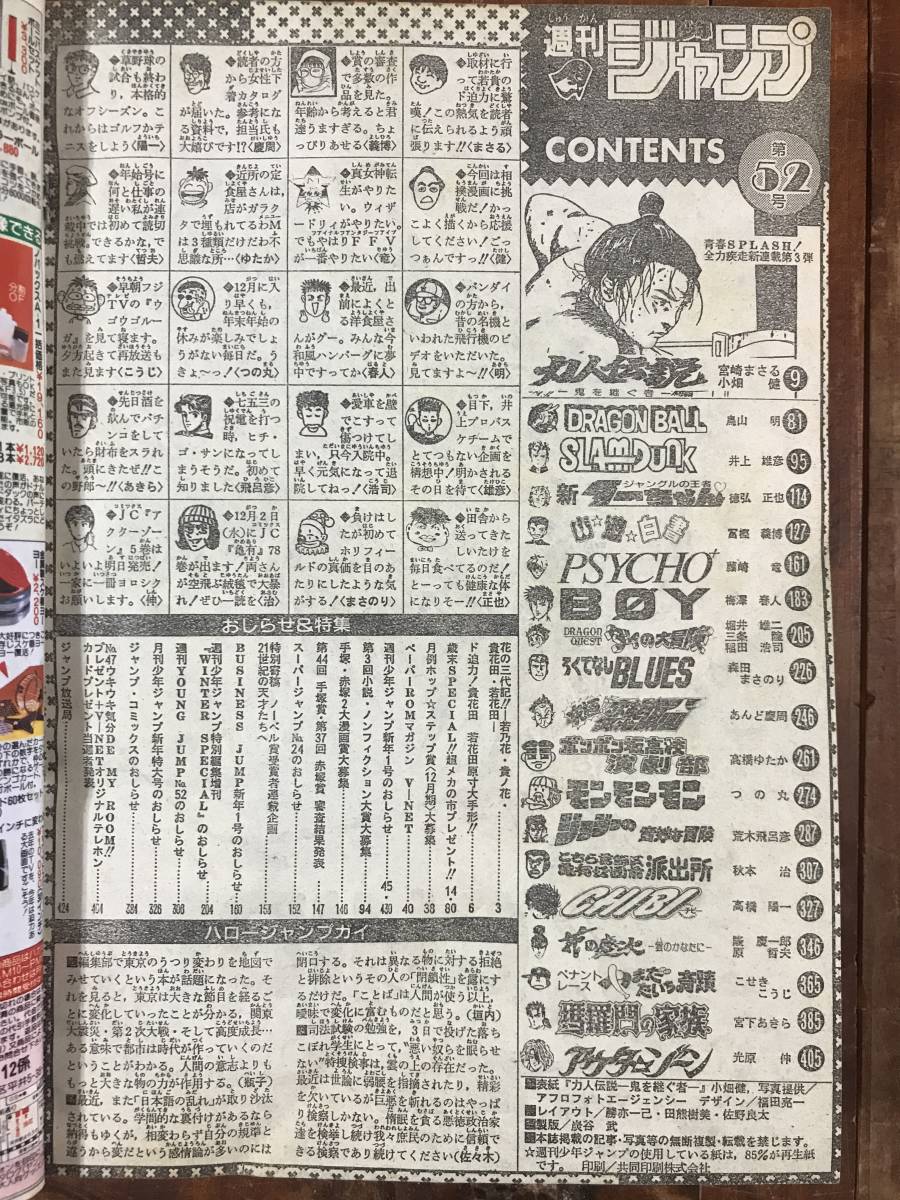 週刊
しゅうかん
ジャンプ
CONTENTS
第
52
号
青春SPLASH!
全力疾走新連載第3弾
力人伝説
―鬼を継ぐ者―
宮崎まさる
小畑 健
9
DRAGON BALL 鳥山 明 81
SLAM DUNK 井上 雄彦 95
新 ジャングルの王者 ターちゃん 徳弘 正也 114
幽☆遊☆白書 冨樫 義博 127
PSYCHO+ 藤崎 竜 161
BØY 梅澤 春人 183
DRAGON QUEST ダイの大冒険 堀井 雄二 三条 陸 稲田 浩司 205
ろくでなしBLUES 森田 まさのり 226
あんど慶周 246
ボンボン坂高校演劇部 高橋ゆたか 261
モンモンモン つの丸 274
ジョジョの奇妙な冒険 荒木飛呂彦 287
こちら葛飾区亀有公園前派出所 秋本 治 307
CHIBI チビ 高橋 陽一 327
花の慶次 ―雲のかなたに― 隆 慶一郎 原 哲夫 346
ペナントレース やまだたいちの奇蹟 こせき こうじ 365
瑪羅門の家族 宮下あきら 385
アウターゾーン 光原 伸 405
■表紙『力人伝説―鬼を継ぐ者―』小畑健，写真提供／
アフロフォトエージェンシー デザイン／福田亮一
■レイアウト／勝亦一己・田熊樹美・佐野良太
■製版／炭谷 武
■本誌掲載の記事・写真等の無断複製・転載を禁じます。
☆週刊少年ジャンプの使用している紙は、85％が再生紙
です。 印刷／共同印刷株式会社
◆取材に行
って若貴の
ド迫力に驚
嘆！この熱気を読者
に伝えられるよう頑
張ります!!〈まさる〉
◆賞の審査
で多数の作
品を見た。
年齢から考えると君
達うますぎる。ちょ
っぴりあせる〈義博〉
◆読者の方
から女性下
着カタログ
が届いた。参考にな
る資料で，担当氏も
大喜びです!?〈慶周〉
◆草野球の
試合も終わ
り，本格的
なオフシーズン。こ
れからはゴルフかテ
ニスをしよう〈陽一〉
◆今回は相
撲漫画に挑
戦だ！かっ
こよく描くから応援
してください！ごっ
つぁんですっ!!〈健〉
◆真女神転
生がやりた
い。ウィザ
ードリィがやりたい。
でもやはりＦＦＶ
が一番やりたい〈竜〉
◆近所の定
食屋さんは，
店がガラク
タで埋もれてるわＭ
は３種類だけだわ不
思議な所…〈ゆたか〉
◆年始号に
何と仕事の
遅い私が連
載中では初めて読切
挑戦。できるかな，で
も燃えてます〈哲夫〉
◆バンダイ
の方から，
昔の名機と
いわれた飛行機のビ
デオをいただいた。
見てますよ〜!!〈明〉
◆最近，出
前によくと
る洋食屋さ
んがグー。みんな今
和風ハンバーグに夢
中ですってか〈春人〉
◆12月に入
り早くも，
年末年始の
休みが楽しみでしょ
うがない毎日だ。う
きょ〜っ！〈つの丸〉
◆早朝フジ
TVの『ウ
ゴウゴルー
ガ』を見て寝ます。
夕方起きて再放送も
また見ます〈こうじ〉
◆目下，井
上プロバス
ケチームで
とてつもない企画を
構想中！明かされる
その日を待て〈雄彦〉
◆愛車を壁
でこすって
傷つけてし
まい，只今入院中。
早く元気になって退
院してねっ！〈浩司〉
◆七五三の
祝電を打つ
時，ヒチ・
ゴ・サンになってし
まうそうだ。初めて
知りました〈飛呂彦〉
◆先日酒を
飲んでパチ
ンコをして
いたら財布をスラれ
た。頭にきたぜ!!こ
の野郎〜!!〈あきら〉
◆田舎から
送ってきた
しいたけを
毎日食べてるのだ！
とーっても健康な体
になりそー!!〈正也〉
◆負けはし
たが初めて
ホリフィー
ルドの真価を目のあ
たりにしたような気
がする！〈まさのり〉
◆12月２日
(水)にＪＣ
『亀有』78
巻が出ます！両さん
が空飛ぶ絨毯で大暴
れ！ぜひ一読を〈治〉
◆ＪＣ『ア
ウターゾー
ン』５巻は
いよいよ明日発売！
一家に一冊ヨロシク
お願いします。〈伸〉
おしらせ&特集
花の三代記!!―若乃花・貴ノ花・貴花田・若花田― 3
ド迫力！貴花田 若花田原寸大手形!! 6
歳末SPECIAL!!超メカの市プレゼント!! 14・80
月例ホップ☆ステップ賞〈12月期〉大募集 38
ペーパーROMマガジン V―NET 40
週刊少年ジャンプ新年１号のおしらせ 45・430
第３回小説・ノンフィクション大賞大募集 94
手塚・赤塚２大漫画賞大募集 146
第44回 手塚賞・第37回 赤塚賞 審査結果発表 147
スーパージャンプ№24のおしらせ 152
特別寄稿 ノーベル賞受賞者連載企画 21世紀の天才たちへ 153
BUSINESS JUMP新年１号のおしらせ 160
週刊少年ジャンプ特別編集増刊『WINTER SPECIAL』のおしらせ 204
週刊YOUNG JUMP№52のおしらせ 306
月刊少年ジャンプ新年特大号のおしらせ 326
ジャンプ・コミックスのおしらせ 384
№47ウキウキ気分DE MY ROOM!!プレゼント・V―NETオリジナルテレホンカードプレゼント当選者発表 404
ジャンプ放送局 424
ハロージャンプカイ
■編集部で東京のうつり変わりを地図で
みせていくという本が話題になった。そ
れを見ると，東京は大きな節目を経るご
とに変化していったことが分かる。関東
大震災・第２次大戦・そして高度成長…
ある意味で都市は時代が作っていくのだ
ということがわかる。人間の意志よりも
もっと大きな物の力が作用する。（瓶子）
■最近，また「日本語の乱れ」が取り沙汰
されている。学問的な裏付けがあるなら
納得もゆくが，相変わらず自分の規準と
違うから変だという感情論が多いのには
閉口する。それは異なる物に対する拒絶
と排除というその人の「閉鎖性」を露にす
るだけだ。「ことば」は人間が使う以上，
曖昧で変化に富むものだと思う。（垣内）
■司法試験の勉強を，３日で投げた落ち
こぼれ学生にとって〝悪い奴らを眠らせ
ない〟特捜検事は，雲の上の存在だった。
最近は世論に弱腰を指摘されたり，精彩
を欠いているが巨悪を斬れるのはやっぱ
り検察しかない。惰眠を貪る悪徳政治家
達を検挙し続け我々庶民のために信頼で
きる検察であり続けてください（佐々木）